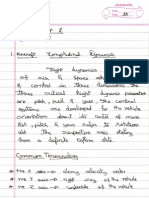 classmate
Date
Page 30
2
1. Aircraft Longitudinal Dynamics
Flight dynamics
of air & space
& control in three dimensions. The
three critical flight dynamic parameters
are pitch, roll & yaw. The control
systems are developed for the vehicle
orientation about its centre of mass.
But pitch & yaw refer to rotations
abt the respective axes starting
from a definite eqbm state.
Common Terminologies
→ the X axis → along velocity vector
→ the Y axis → right wing of the vehicle
→ the Z axis → underside of the vehicle